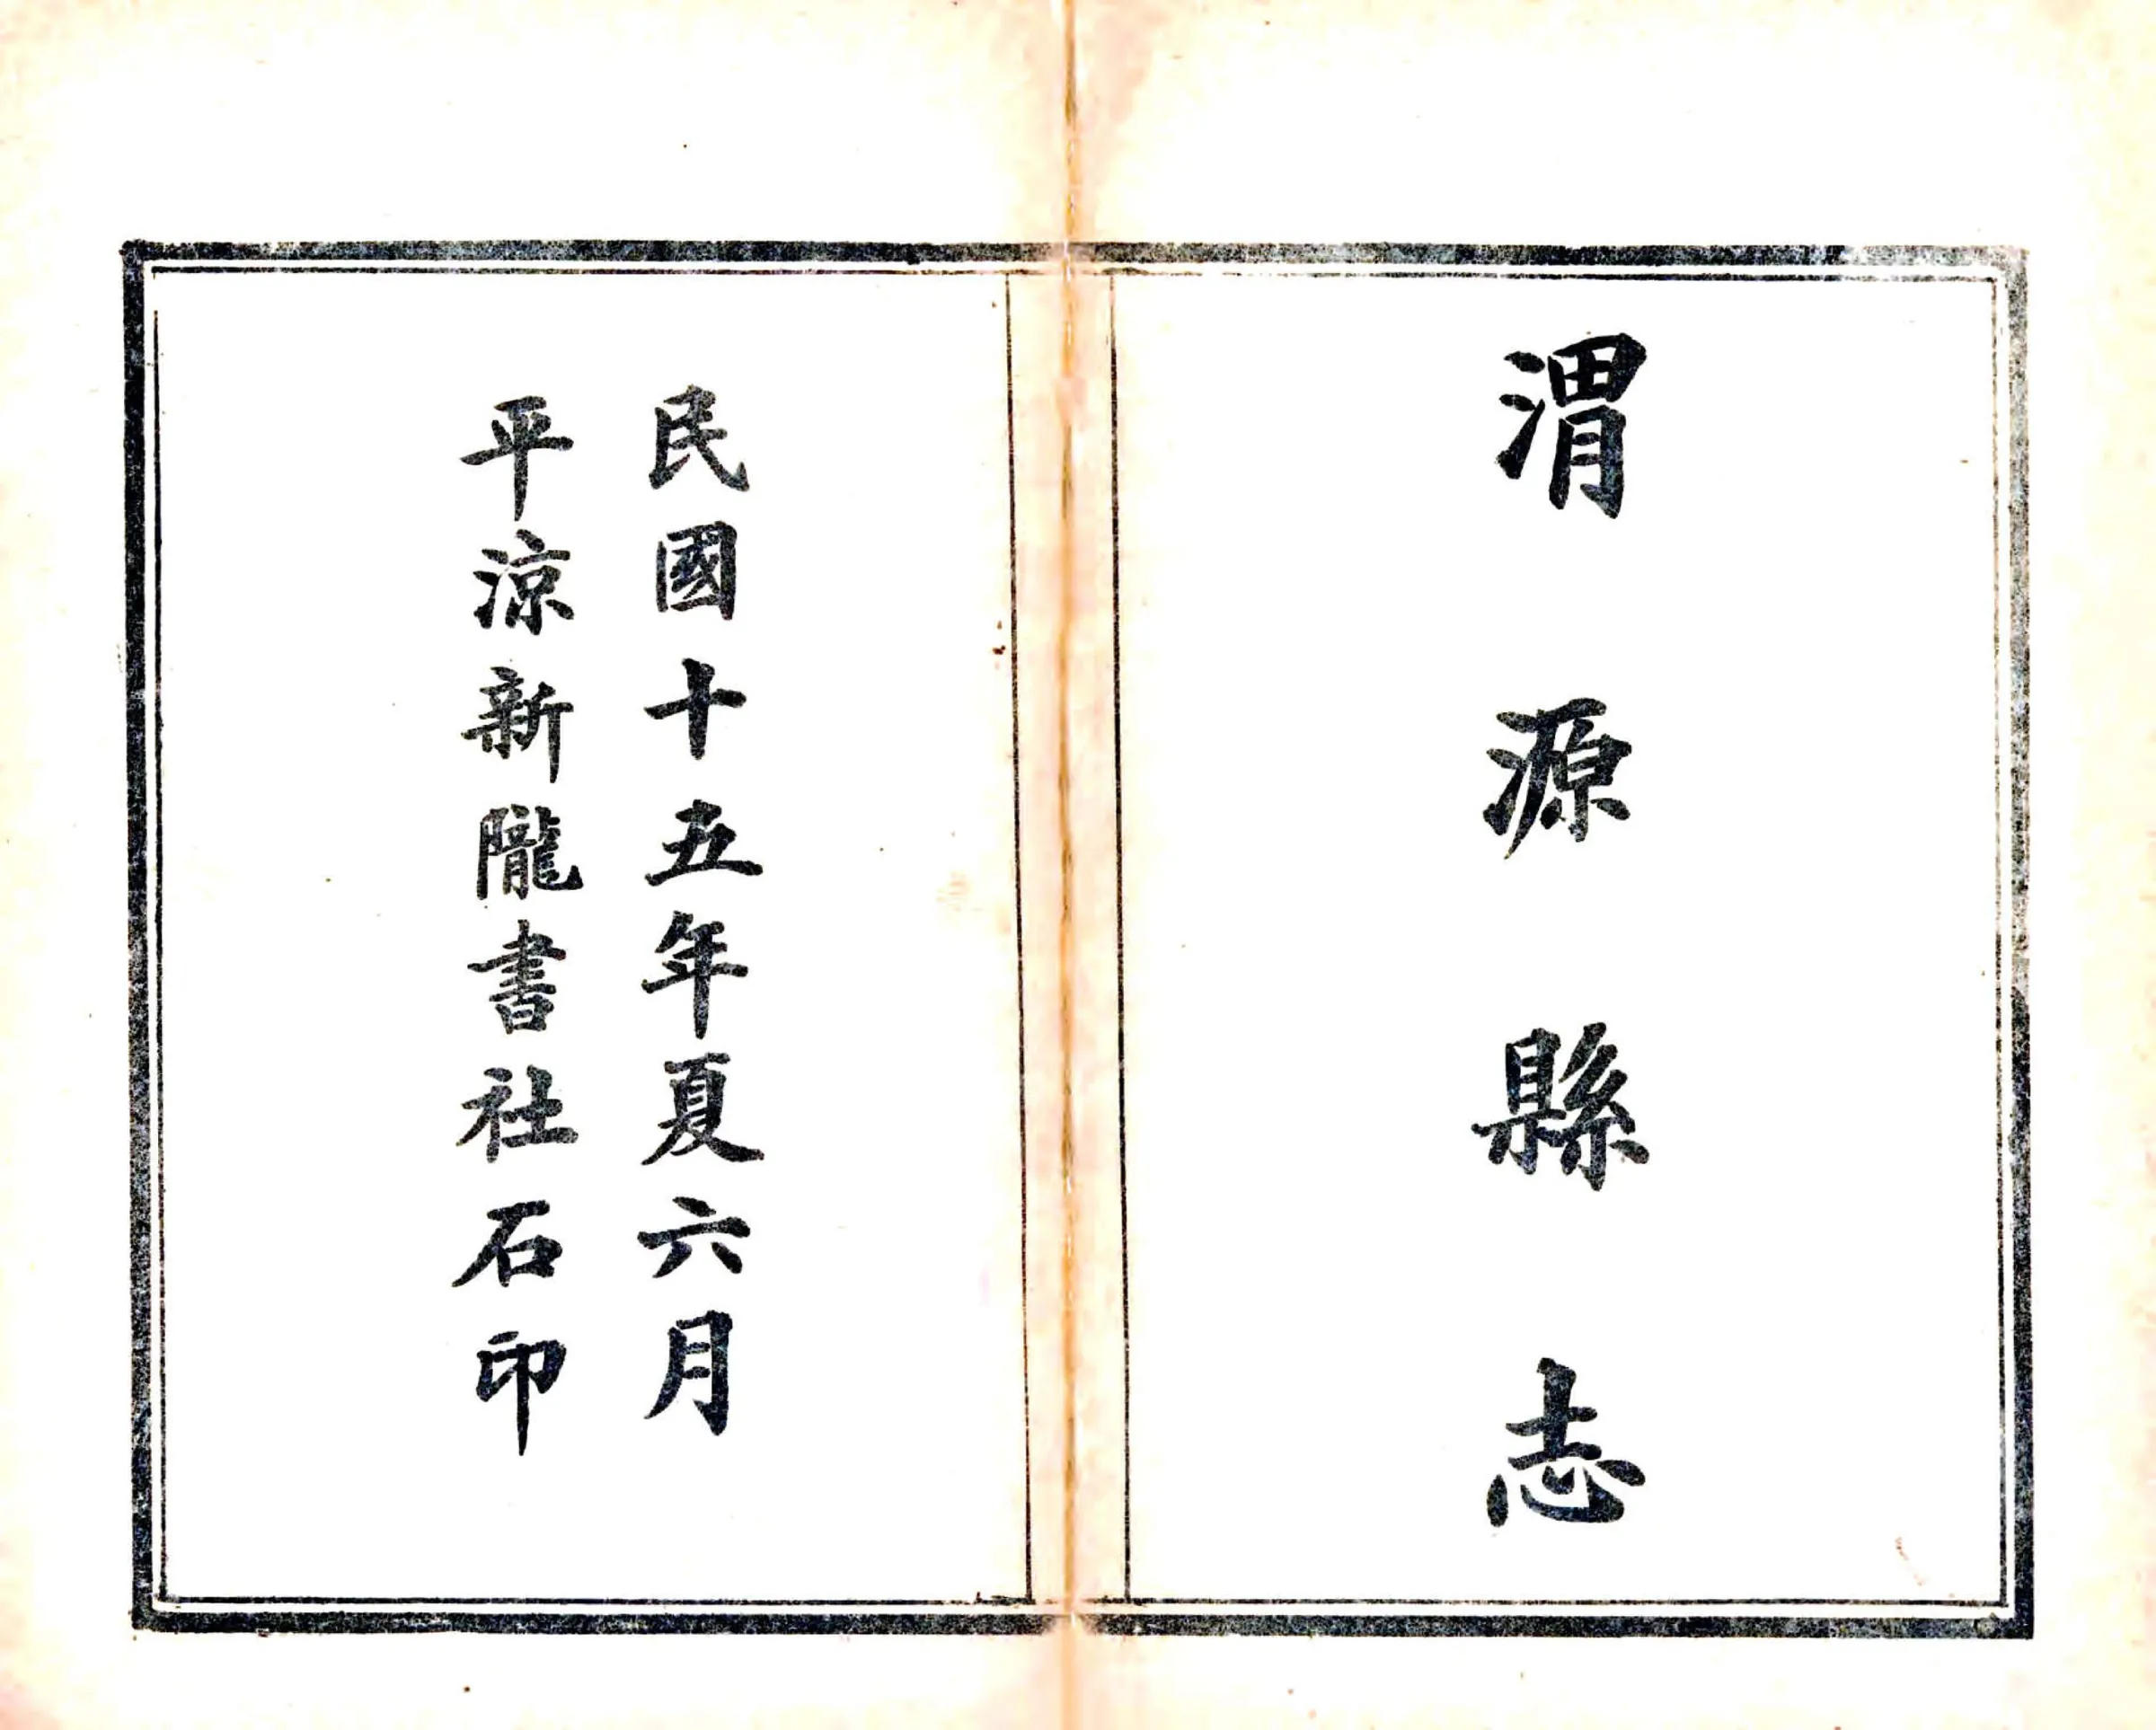 渭源縣志
民國十五年夏六月
平涼新隴書社石印